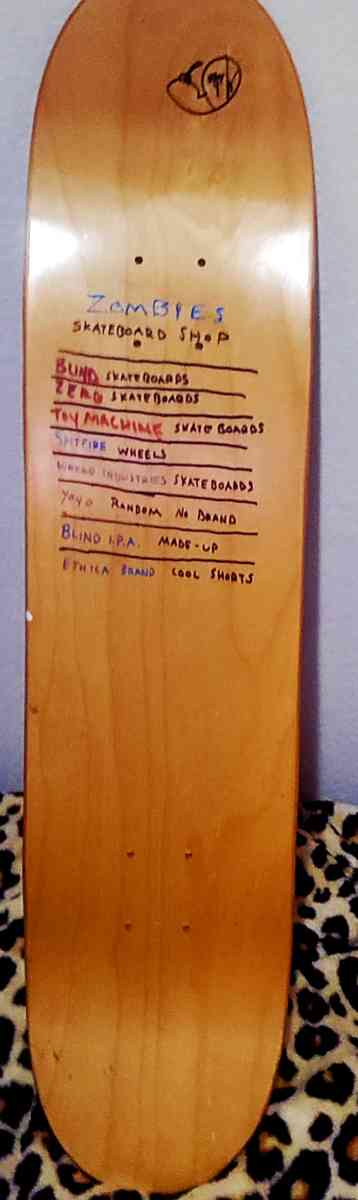 ZOMBIES
SKATEBOARD SHOP
BLIND SKATEBOARDS
ZERO SKATEBOARDS
TOY MACHINE SKATE BOARDS
SPITFIRE WHEELS
INDUSTRIES SKATEBOARDS
YOYO RANDOM NO BRAND
BLIND I.P.A. MADE-UP
ETHICA BRAND COOL SHORTS